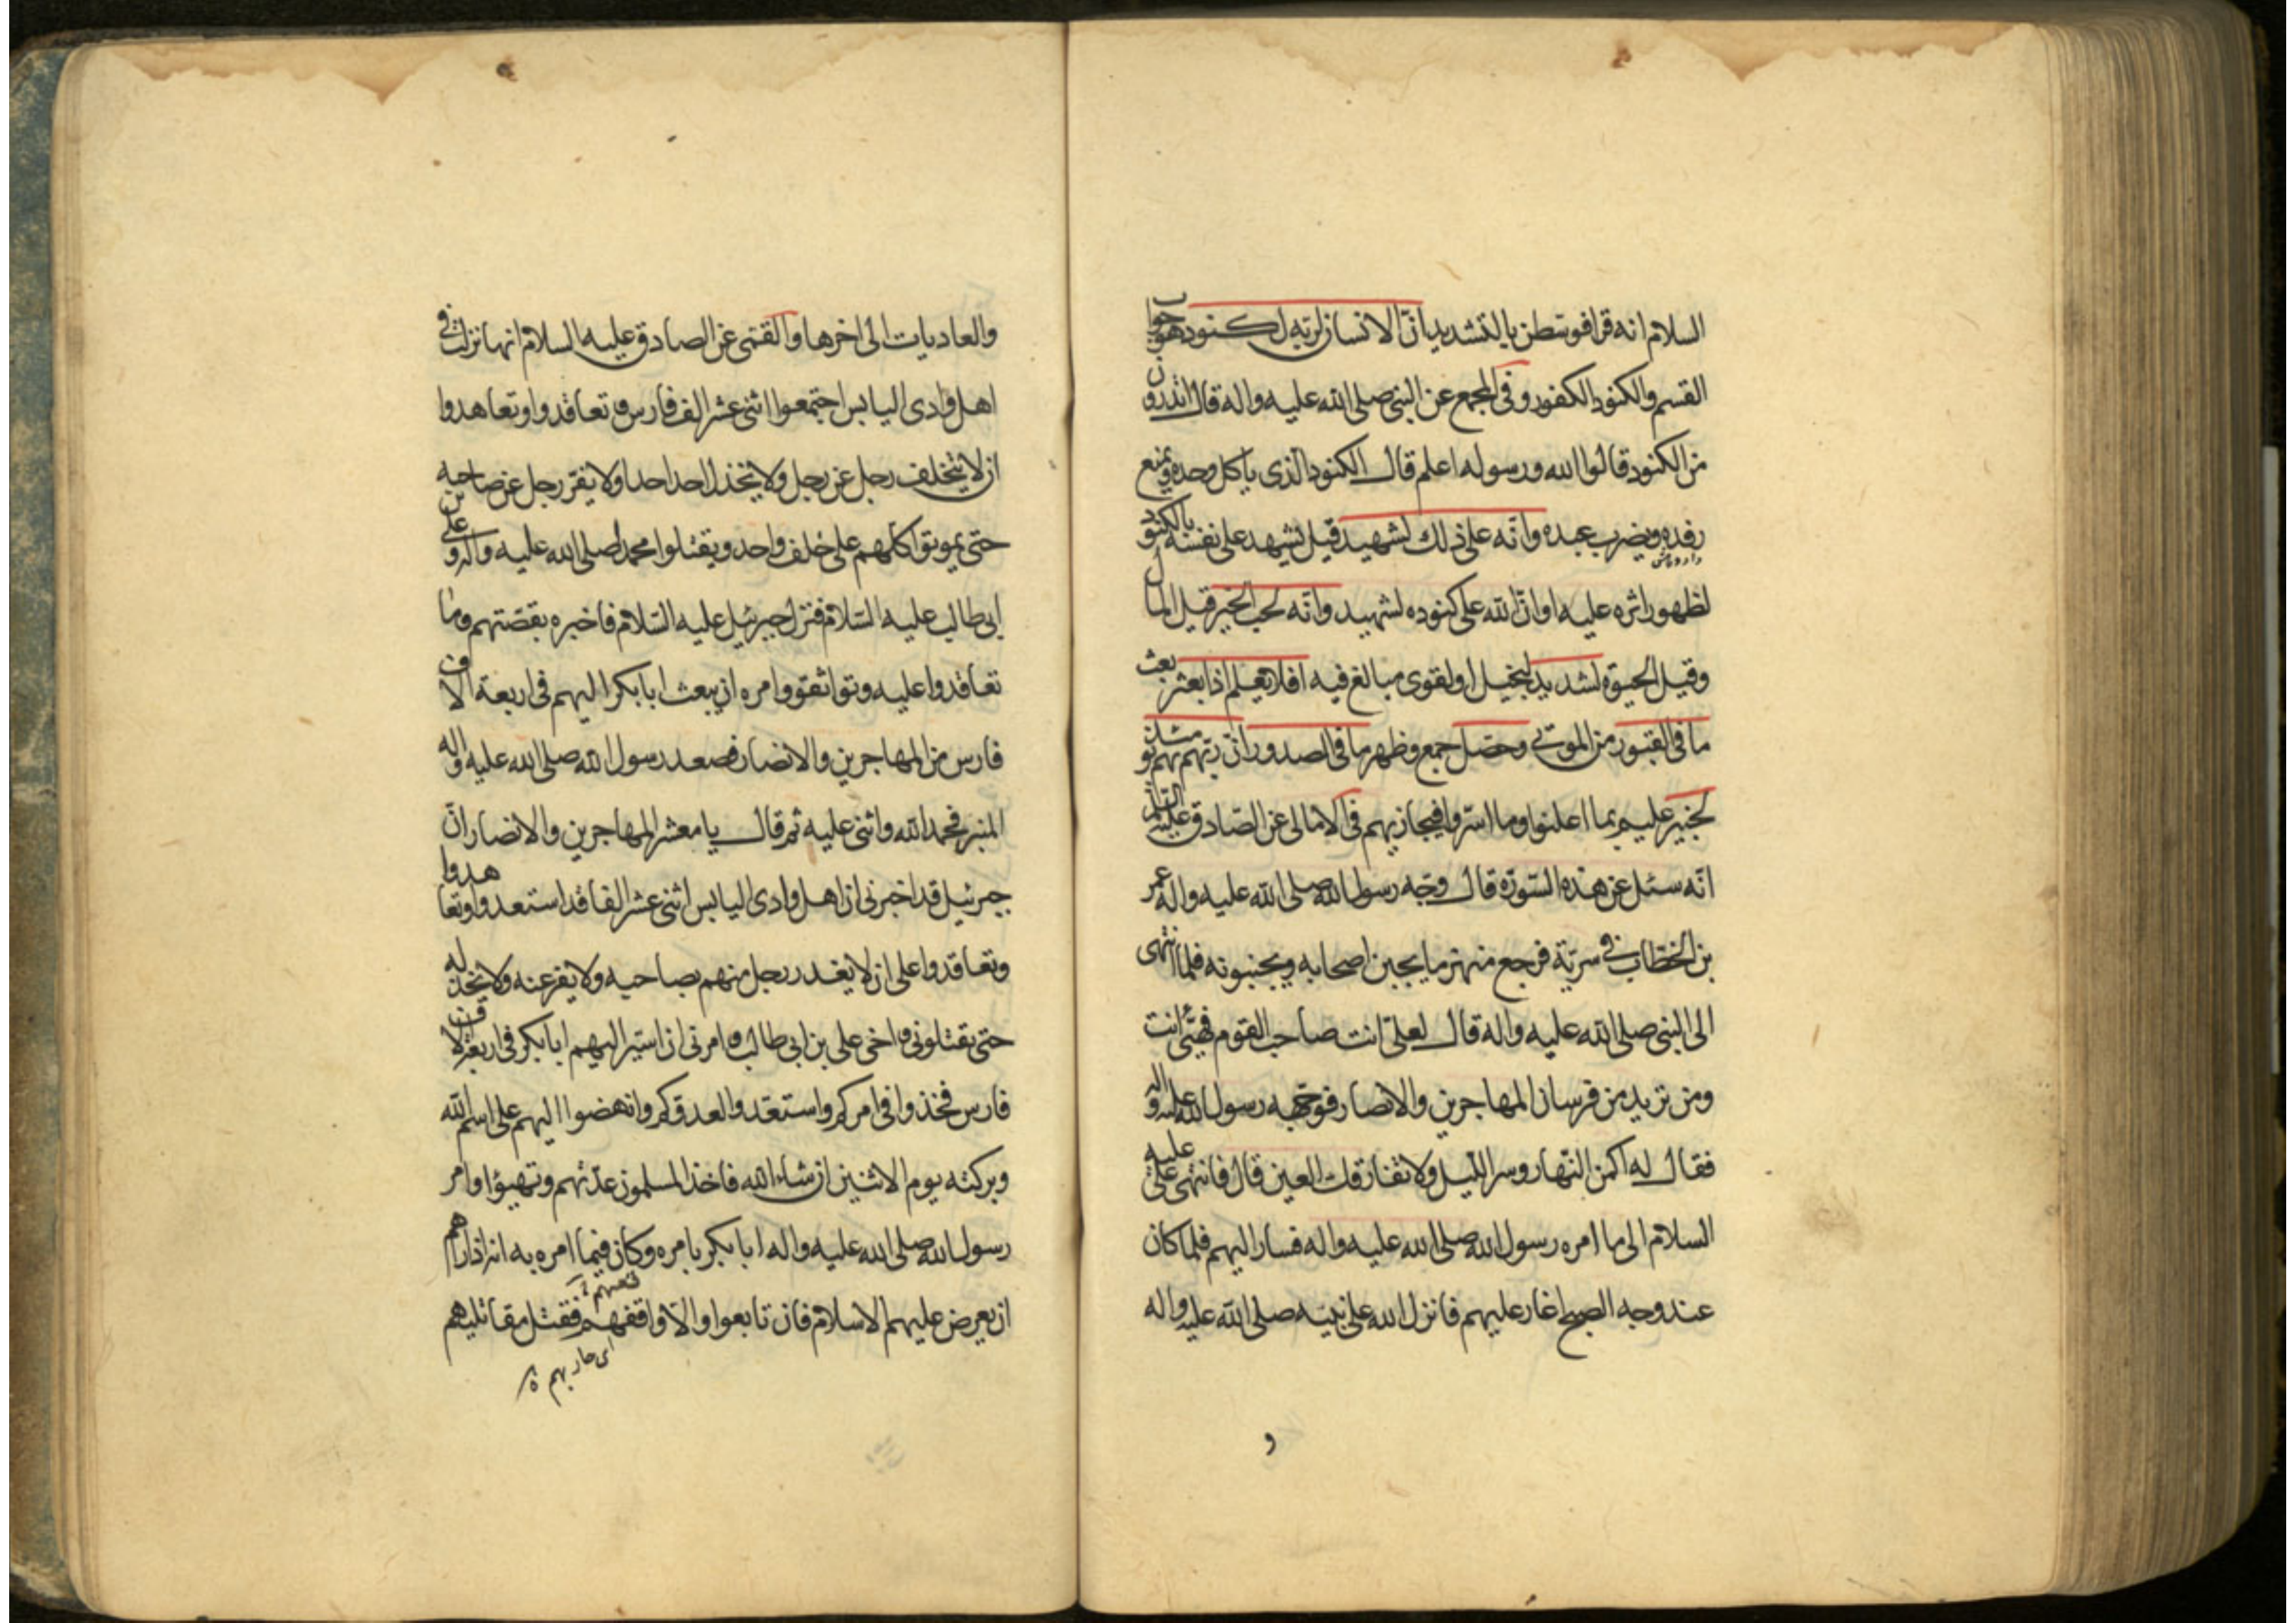 السلام انه قرا فوسطن بالتشديد انّ الانسان لربّه لكنود هو جواب
القسم والكنود الكفور وفى المجمع عن النبى صلى الله عليه واله قال اتدرون
من الكنود قالوا الله ورسوله اعلم قال الكنود الذى ياكل وحده ويمنع
رفده ويضرب عبده وانّه على ذلك لشهيد قيل يشهد على نفسه بالكنود
لظهور اثره عليه او انّ الله على كنوده لشهيد وانّه لحب الخير قيل المال
وقيل الحيوة لشديد لبخيل او لقوى مبالغ فيه افلا يعلم اذا بعثر بعث
ما فى القبور من الموتى وحصّل جمع وظهر ما فى الصدور انّ ربّهم بهم يومئذ
لخبير عليم بما اعلنوا وما اسرّوا فيجازيهم فى الامالى عن الصّادق عليه السّلم
انّه سئل عن هذه السّورة قال وجّه رسول الله صلى الله عليه واله عمر
بن الخطاب فى سريّة فرجع منهزما يجبن اصحابه ويجبنونه فلما انتهى
الى النبى صلى الله عليه واله قال لعلىّ انت صاحب القوم فهيّئ انت
ومن تريد من فرسان المهاجرين والانصار فوجّهه رسول الله عليه واله
فقال له اكمن النّهار وسر اللّيل ولا تفارقك العين قال فانتهى علىّ عليه
السلام الى ما امره رسول الله صلى الله عليه واله فسار اليهم فلما كان
عند وجه الصبح اغار عليهم فانزل الله على نبيّه صلى الله عليه واله
و
والعاديات الى اخرها والقمّى عن الصادق عليه السلام انها نزلت فى
اهل وادى اليابس اجتمعوا اثنى عشر الف فارس و تعاقدوا وتعاهدوا
ان لا يتخلف رجل عن رجل ولا يخذل احد احدا ولا يفرّ رجل عن صاحبه
حتى يموتوا كلهم على خلف واحد ويقتلوا محمدا صلى الله عليه واله وعلى بن
ابى طالب عليه السّلام فنزل جبرئيل عليه السّلام فاخبره بقصّتهم وما
تعاقدوا عليه وتواثقوا وامره ان يبعث ابابكر اليهم فى اربعة الاف
فارس من المهاجرين والانصار فصعد رسول الله صلى الله عليه واله
المنبر فحمد الله واثنى عليه ثم قال يا معشر المهاجرين والانصار انّ
جبرئيل قد اخبرنى ان اهل وادى اليابس اثنى عشر الفا قد استعدوا وتعاهدوا
وتعاقدوا على ان لا يغدر رجل منهم بصاحبه ولا يفر عنه ولا يخذله
حتى يقتلونى و اخى على بن ابى طالب و امرنى ان اسير اليهم ابا بكر فى اربعة الاف
فارس فخذوا فى امركم واستعدّوا لعدوّكم وانهضوا اليهم على اسم الله
وبركته يوم الاثنين ان شاء الله فاخذ المسلمون عدّتهم وتهيؤا وامر
رسول الله صلى الله عليه واله ابا بكر بامره وكان فيما امره به انه اذا راهم
ان يعرض عليهم الاسلام فان تابعوا والّا واقفهم فقتل مقاتليهم
اى حاربهم